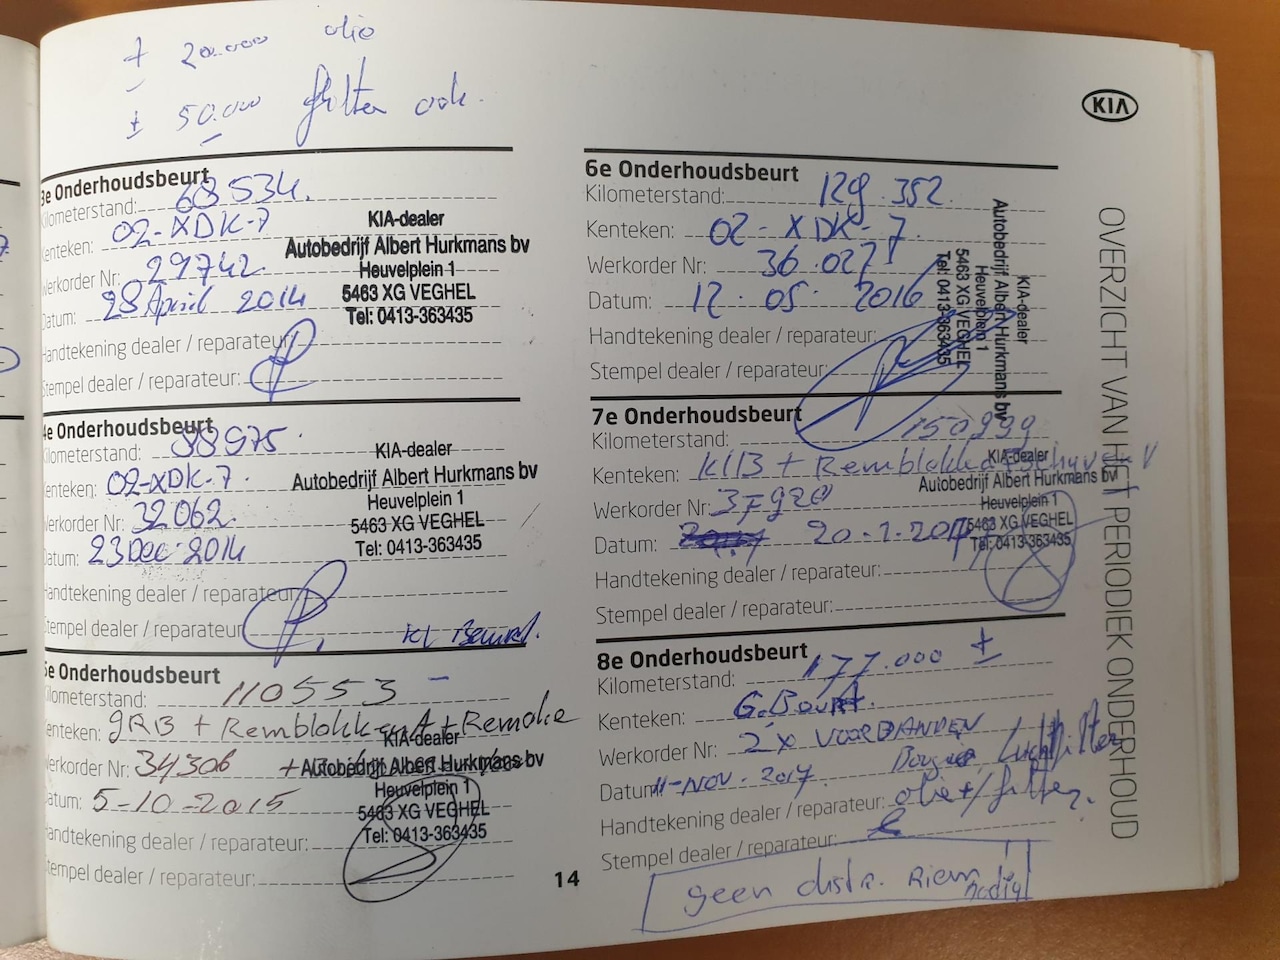 ± 20.000 olie
± 50.000 filter ook.
KIA
OVERZICHT VAN HET PERIODIEK ONDERHOUD
3e Onderhoudsbeurt
Kilometerstand: 68534.
Kenteken: 02-XDK-7
Werkorder Nr: 29742.
Datum: 28 April 2014
Handtekening dealer / reparateur:
Stempel dealer / reparateur:
KIA-dealer
Autobedrijf Albert Hurkmans bv
Heuvelplein 1
5463 XG VEGHEL
Tel: 0413-363435
4e Onderhoudsbeurt
Kilometerstand: 88975.
Kenteken: 02-XDK-7.
Werkorder Nr: 32062.
Datum: 23 Dec 2014
Handtekening dealer / reparateur:
Stempel dealer / reparateur: kl Beurt.
KIA-dealer
Autobedrijf Albert Hurkmans bv
Heuvelplein 1
5463 XG VEGHEL
Tel: 0413-363435
5e Onderhoudsbeurt
Kilometerstand: 110553 -
Kenteken: gRB + Remblokken A + Remolie
Werkorder Nr: 34306 +
Datum: 5-10-2015
Handtekening dealer / reparateur:
Stempel dealer / reparateur:
KIA-dealer
Autobedrijf Albert Hurkmans bv
Heuvelplein 1
5463 XG VEGHEL
Tel: 0413-363435
14
6e Onderhoudsbeurt
Kilometerstand: 129.352.
Kenteken: 02-XDK-7.
Werkorder Nr: 36.027
Datum: 12.05.2016
Handtekening dealer / reparateur:
Stempel dealer / reparateur:
KIA-dealer
Autobedrijf Albert Hurkmans bv
Heuvelplein 1
5463 XG VEGHEL
Tel: 0413-363435
7e Onderhoudsbeurt
Kilometerstand: 150999
Kenteken: KLB + Remblokken + schijven V
Werkorder Nr:
Datum: 20.1.2017
Handtekening dealer / reparateur:
Stempel dealer / reparateur:
KIA-dealer
Autobedrijf Albert Hurkmans bv
Heuvelplein 1
5463 XG VEGHEL
Tel: 0413-363435
8e Onderhoudsbeurt
Kilometerstand: 177.000 ±
Kenteken: G.Beurt.
Werkorder Nr: 2x VOORBANDEN
Bougies, Luchtfilter
Datum: 11-NOV-2017
Handtekening dealer / reparateur: olie + filter.
Stempel dealer / reparateur:
geen distr. Riem nodig!